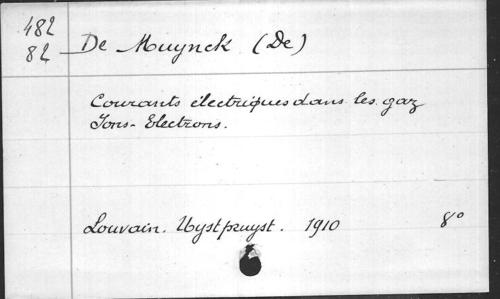 482
82 De Muynck (De)
Courants électriques dans les gaz
Ions-Electrons.
Louvain. Uystpruyst. 1910 8°